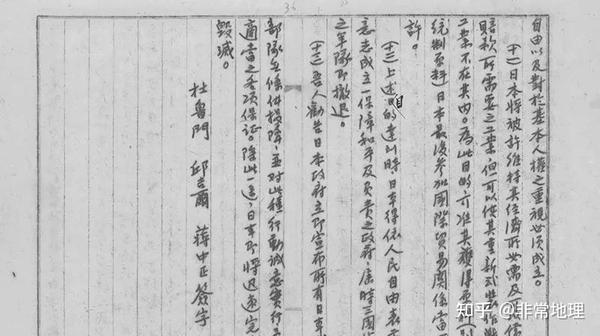 自由以及對於基本人權之重視必須成立。
(十一)日本將被許維持其經濟所必需及可以償
賠款所需要之工業但可以使其重新武裝作戰
工業不在其內。為此目的可准其獲得原料
統制原料)日本最後參加國際貿易關係當
許。
(十二)上述目的達到時日本得依人民自由表
意志成立一保障和平及負責之政府,屆時三國
之軍隊即撤退。
(十三)吾人勸告日本政府立即宣布所有日軍
部隊無條件投降,並對此種行動誠意實行
適當之各項保證。除此一途,日本即將迅速完
毀滅。
杜魯門 邱吉爾 蔣中正 簽字
知乎 @非常地理